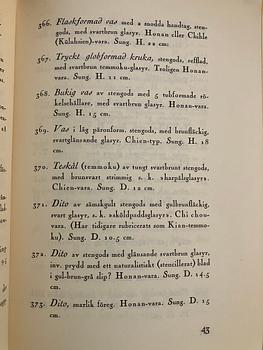 366. Flaskformad vas med 2 modda handtag, sten-
gods, med svartbrun glasyr. Honan eller Chihle
(Küluhsien)-vara. Sung. H. 22 cm:
367. Tryckt globformad kruka, stengods, refflad,
med svartbrun temmoku-glasyr. Troligen Honan-
vara. Sung. H. 11 cm.
368. Bukig vas av stengods med 5 tubformade rö-
kelsehållare, med svartbrun glasyr. Honan-vara.
Sung. H. 15 cm.
369. Vas i låg päronform, stengods, med brunfläckig,
svartglänsande glasyr. Chien-typ. Sung. H. 18
cm.
370. Teskål (temmoku) av tungt svartbrunt stengods,
med brunsvart strimmig s. k. »harpälsglasyr».
Chien-vara. Sung. D. 12 cm.
371. Dito av sämskgult stengods med gulbrunfläckig,
svart glasyr, s. k. »sköldpaddsglasyr». Chi chou-
vara. (Har tidigare rubricerats som Kian-temmo-
ku). Sung. D. 10.5 cm.
372. Dito av stengods med glänsande svartbrun glasyr,
inv. prydd med ett naturalistiskt (stencillerat) blad
i gul-brun-grå slip? Honan-vara. Sung. D. 14.5
cm.
373. Dito, snarlik föreg. Honan-vara. Sung. D. 15
cm.
43